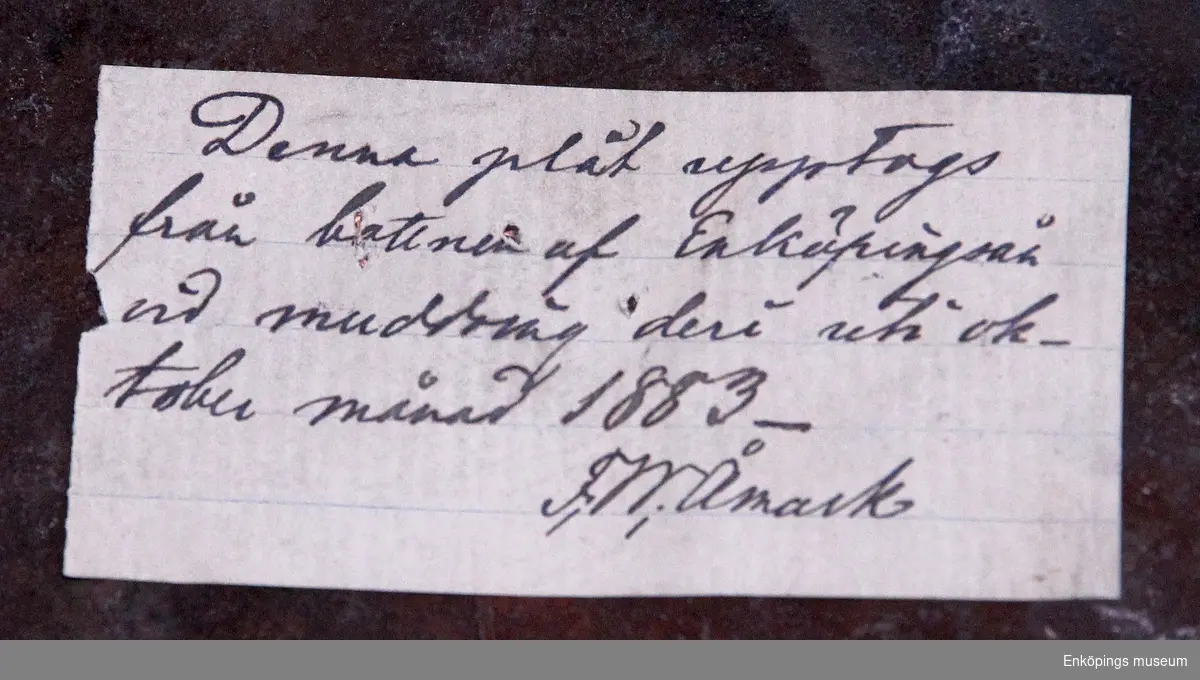 Denna plåt upptogs
från bottnen af Enköpingsån
vid muddring deri uti ok-
tober månad 1883_
F. W. Åmark
Enköpings museum